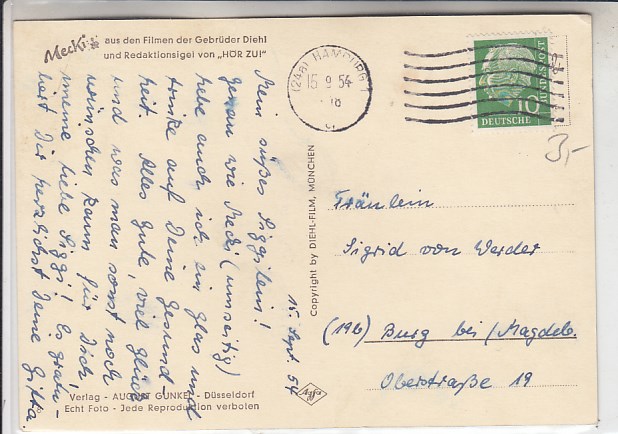 Mecki aus den Filmen der Gebrüder Diehl
und Redaktionsigel von „HÖR ZU!"
(24a) HAMBURG 1
15 9 54
- 18
DEUTSCHE
BUNDESPOST
10
3,-
15. Sept. 54
Mein süßes Siggilein!
Genau wie Mecki (umseitig)
hebe auch ich ein Glas und
trinke auf Deine Gesund-
heit. Alles Gute, viel Glück
und was man sonst noch
wünschen kann für Dich
meine liebe Siggi! Es gratu-
liert Dir herzlichst Deine Gitta
Copyright by DIEHL-FILM, MÜNCHEN
Agfa
Fräulein
Sigrid von Werder
(19b) Burg bei/Magdeb.
Oberstraße 19
Verlag - AUGUST GUNKEL - Düsseldorf
Echt Foto - Jede Reproduktion verboten